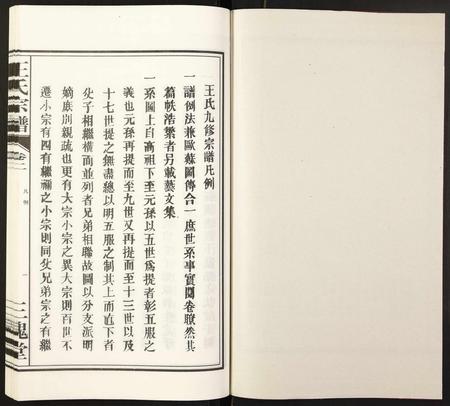 王氏九修宗譜凡例
一譜例法兼歐蘇圖傳合一庶世系事實開卷瞭然其
篇帙浩繁者另載藝文集
一系圖上自高祖下至元孫以五世爲提者彰五服之
義也元孫再提而至九世又再提而至十三世以及
十七世提之無盡總以明五服之制其上而直下者
父子相繼橫而並列者兄弟相聯故圖以分支派明
嫡庶別親疏也更有大宗小宗之異大宗則百世不
遷小宗有四有繼禰之小宗則同父兄弟宗之有繼
王氏宗譜
卷二
凡例
一
三槐堂